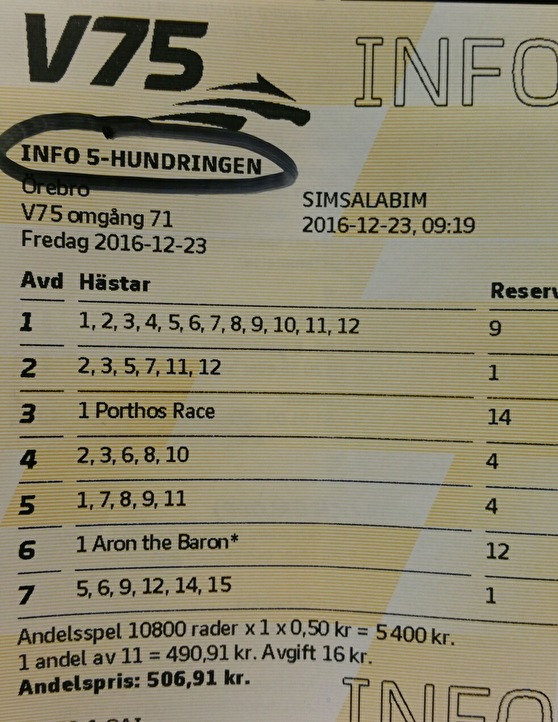 V75
INFO
INFO 5-HUNDRINGEN
Örebro
V75 omgång 71
Fredag 2016-12-23
SIMSALABIM
2016-12-23, 09:19
Avd Hästar Reserv
1 1, 2, 3, 4, 5, 6, 7, 8, 9, 10, 11, 12 9
2 2, 3, 5, 7, 11, 12 1
3 1 Porthos Race 14
4 2, 3, 6, 8, 10 4
5 1, 7, 8, 9, 11 4
6 1 Aron the Baron* 12
7 5, 6, 9, 12, 14, 15 1
Andelsspel 10800 rader x 1 x 0,50 kr = 5400 kr.
1 andel av 11 = 490,91 kr. Avgift 16 kr.
Andelspris: 506,91 kr.
INFO